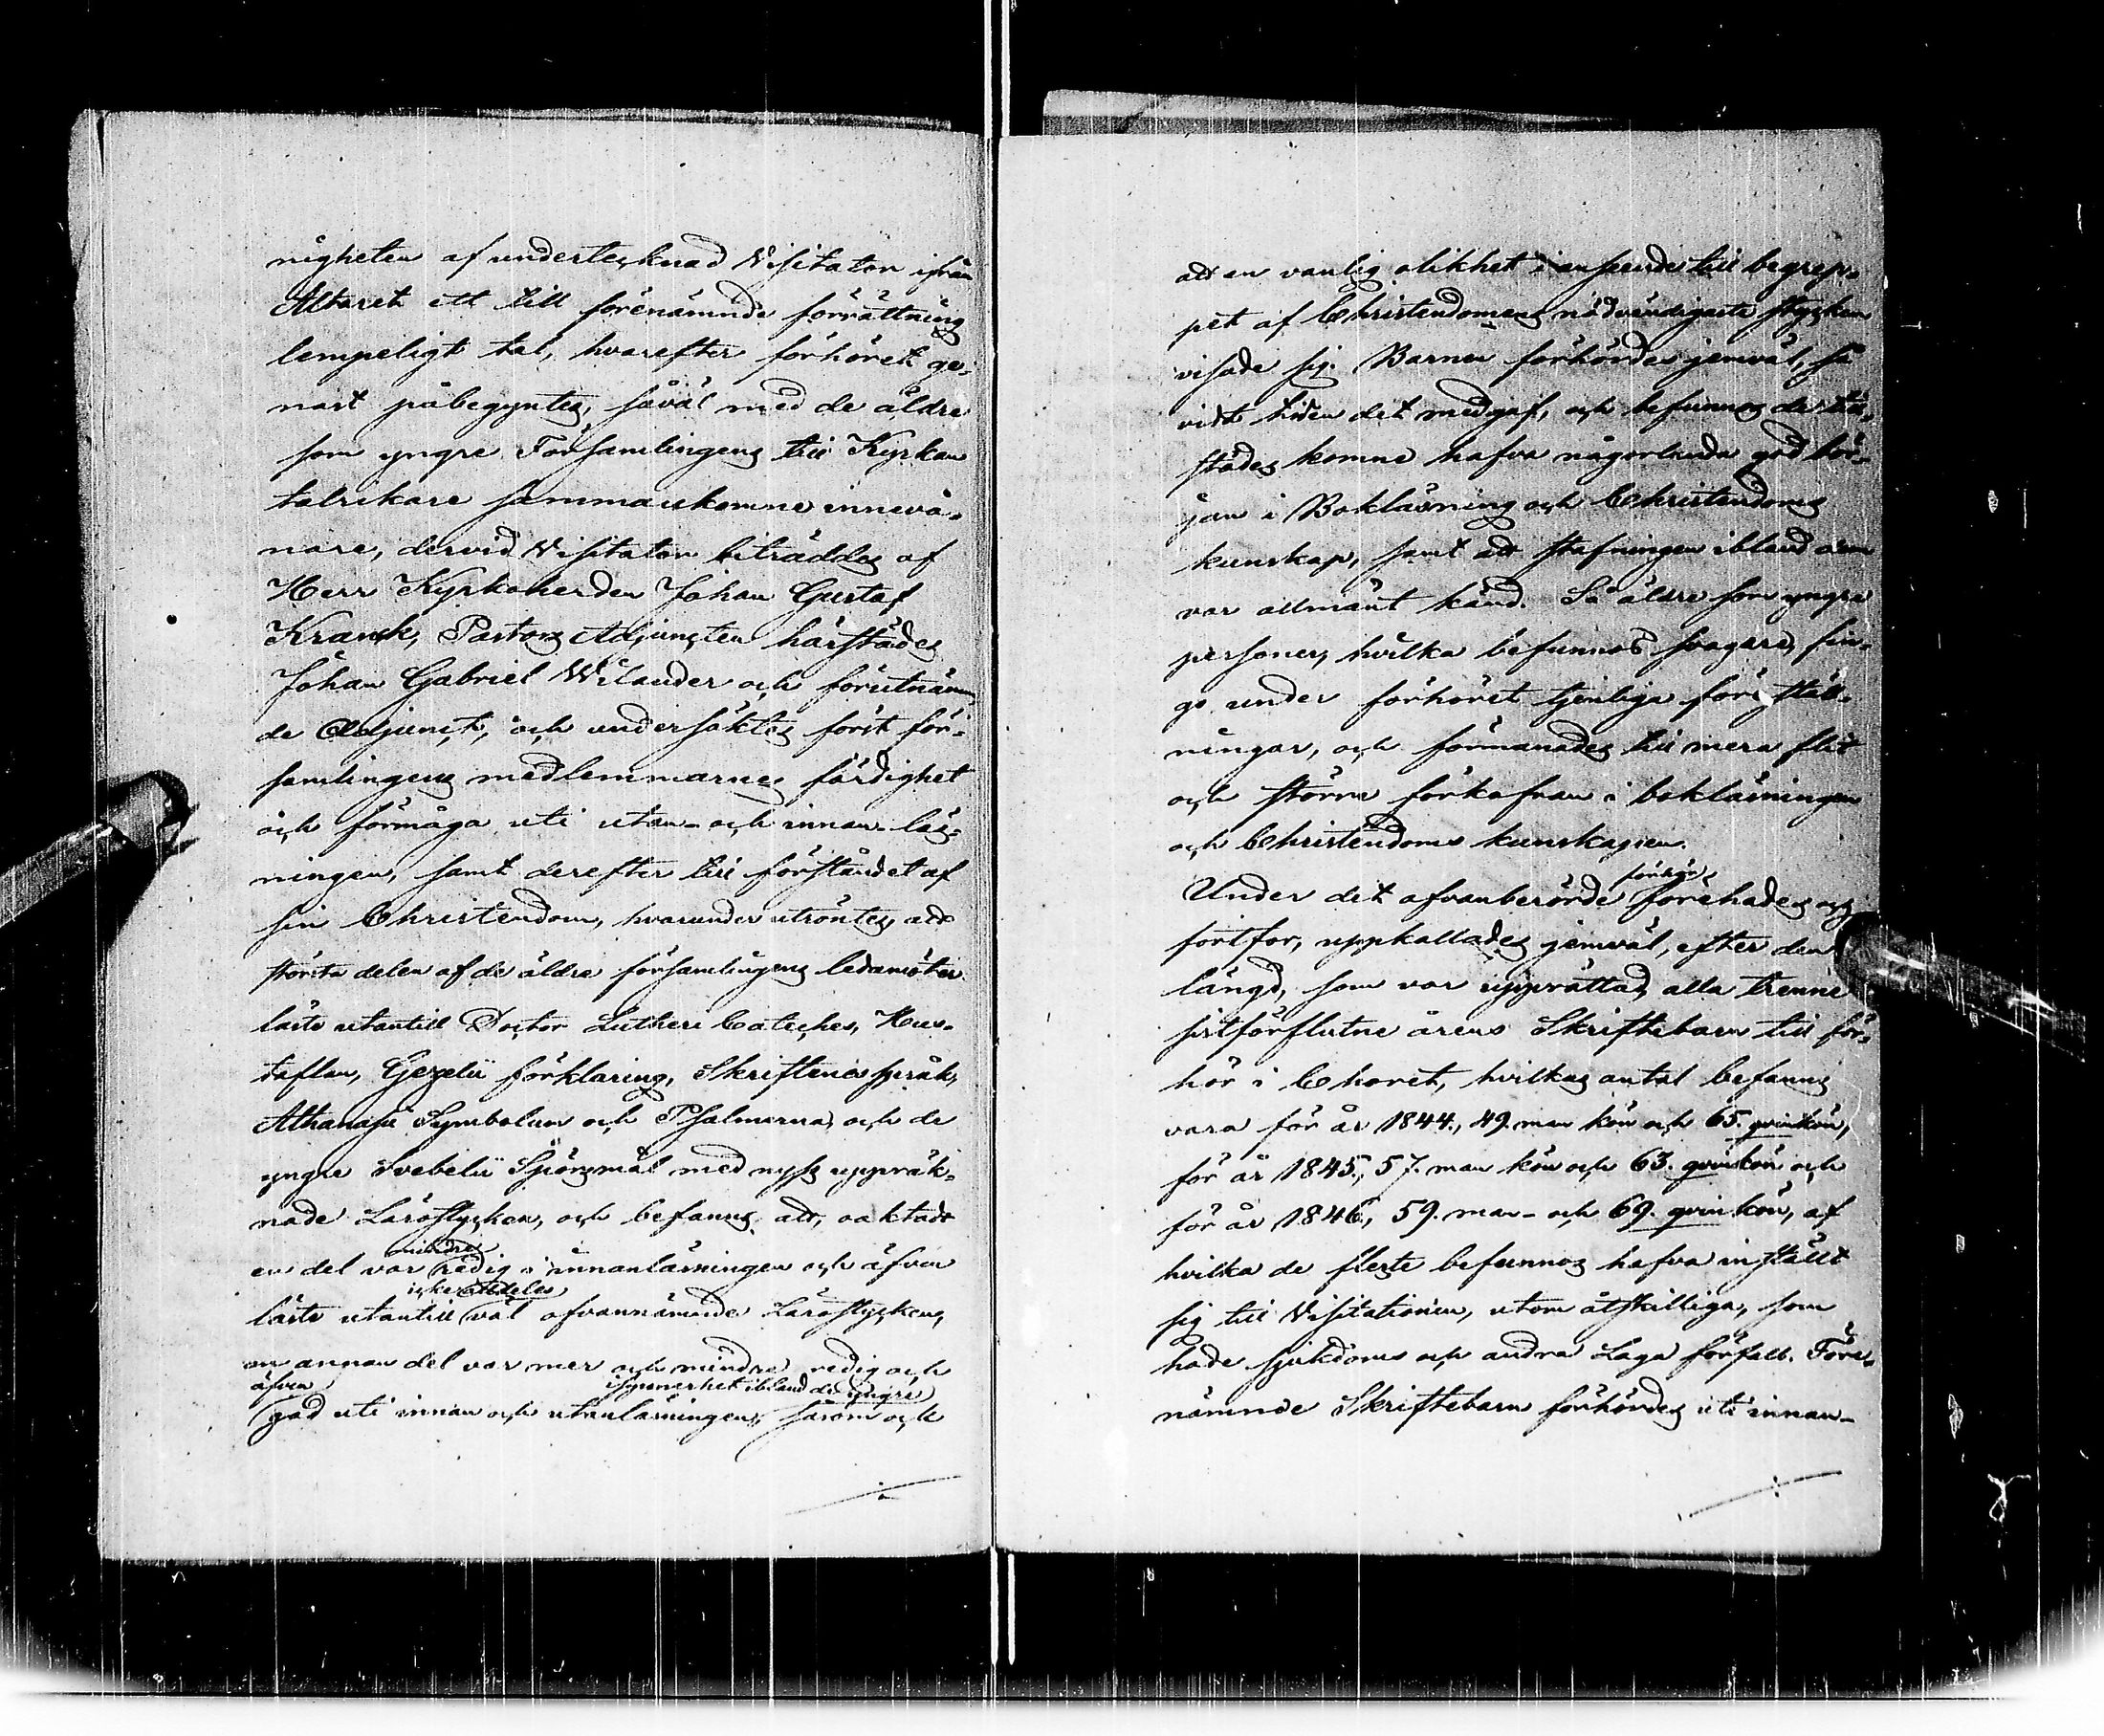 nigheten af undertecknad Visitator ifrån
Altaret ett till förenämnde förrättning
lempeligt tal, hvarefter förhöret ge-
nast påbegyntes, såväl med de äldre
som yngre Församlingens till Kyrkan
talrikare sammankomne innevå-
nare, dervid Visitator biträddes af
Herr Kyrkoherden Johan Gustaf
Kranck, Pastors Adjuncten härstädes
Johan Gabriel Welander och förutnämn-
de Adjunct, och undersöktes först för-
samlingens medlemmarnes färdighet
och förmåga uti utan- och innan-läs-
ningen, samt derefter till förståndet af
sin Christendom, hvarunder utröntes, att
största delen af de äldre församlingens ledamöter
läste utantill Doctor Lutheri Cateches, Hus-
taflan, Gezelii förklaring, Skriftenes språk,
Athanasii Symbolum och Psalmerna, och de
yngre Svebelii Spörsmål med nyss uppräk-
nade Lärostycken, och befanns att, oaktadt
mindre
en del var redig i innanläsningen och äfven
icke alldeles
läste utantill väl ofvannämnde Lärostycken,
en annan del var mer och mindre redig och
äfven isynnerhet ibland de yngre
god uti innan och utanläsningen, såsom och
att en vanlig olikhet i anseende till begrep-
pet af Christendomens nödvändigaste stycken
visade sig. Barnen förhördes jemväl, så
vidt tiden det medgaf, och befunnos de till-
städes komne hafva någorlunda god bör-
jan i Bokläsning och Christendoms
kunskap, samt att stafningen ibland dem
var allmänt känd. Så äldre som yngre
personer, hvilka befunnos svagare, fin-
go under förhöret tjenliga föreställ-
ningar, och förmanades till mera flit
och större förkofran i bokläsningen
och Christendoms kunskapen.
förhör
Under det ofvanberörde förehades och
fortfor, uppkallades jemväl, efter den
längd, som var upprättad, alla trenne
sistförflutne årens Skriftebarn till för-
hör i Choret, hvilkas antal befanns
vara för år 1844., 49. man kön och 65. qvinkön,
för år 1845., 57. man kön och 63. qvinkön och
för år 1846., 59. man- och 69. qvinkön, af
hvilka de fleste befunnos hafva inställt
sig till Visitationen, utom åtskilliga, som
hade sjukdoms och andra Laga förfall. Före-
nämnde Skriftebarn förhördes uti innan-